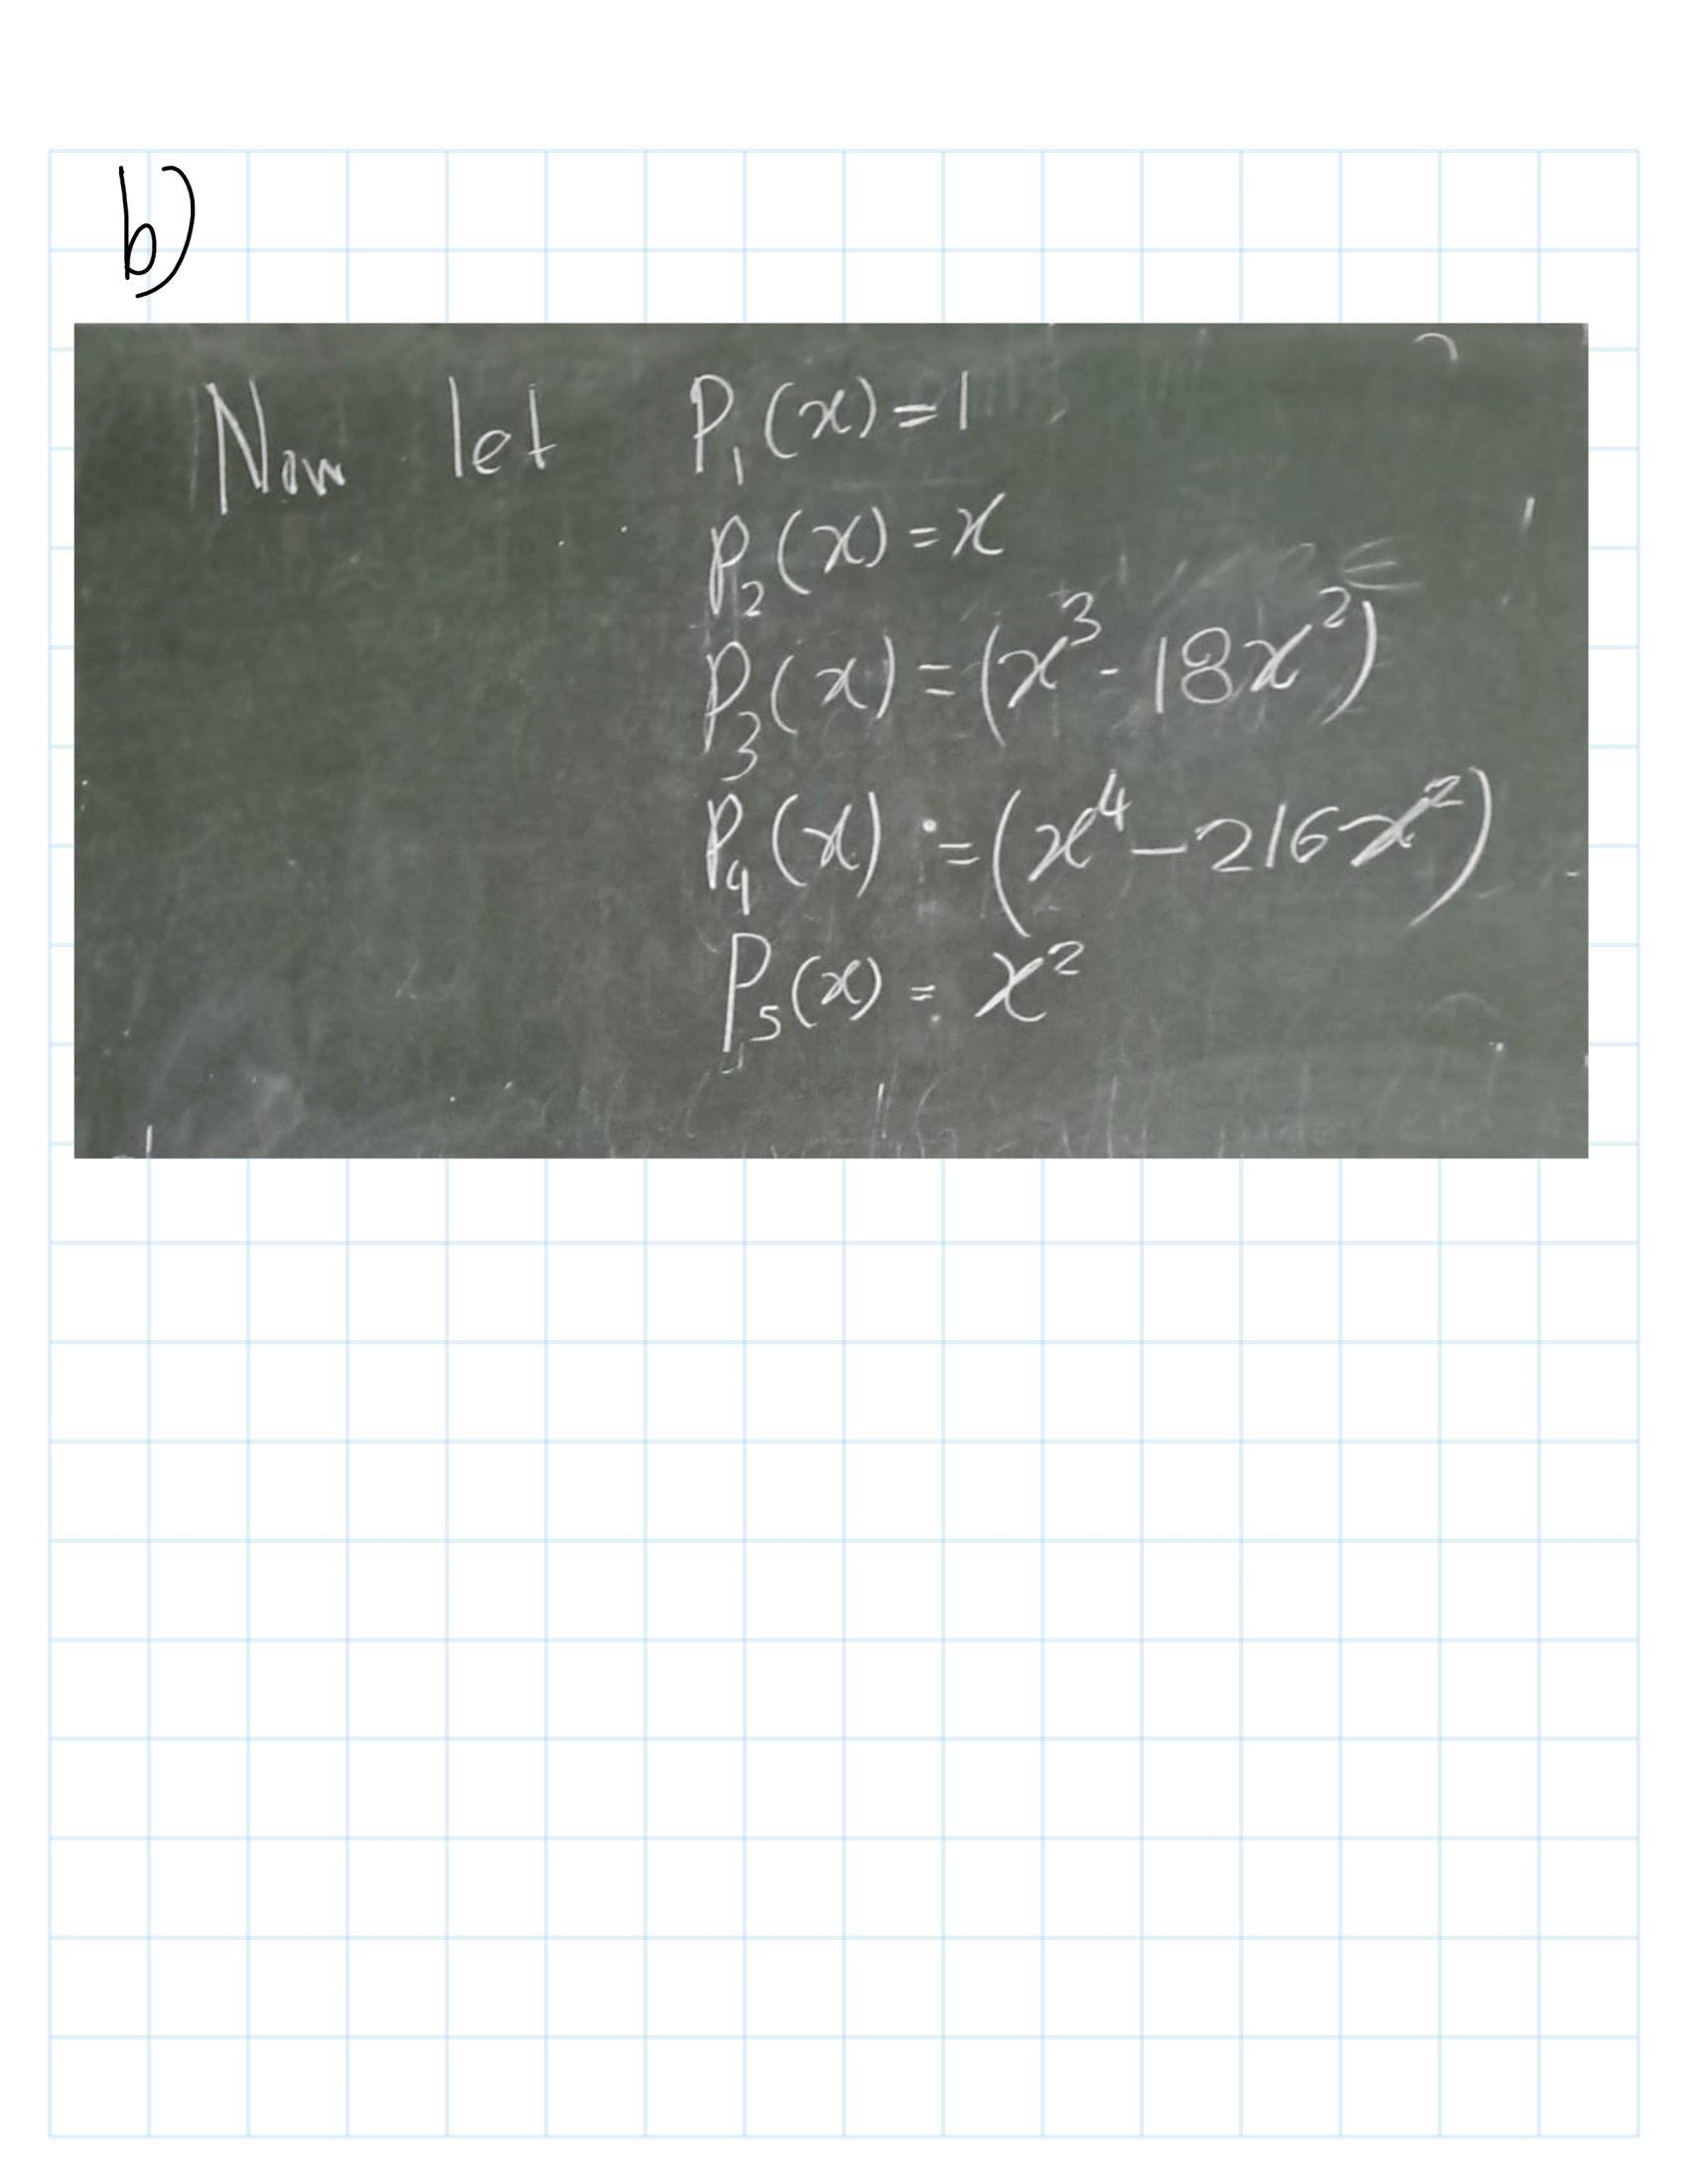 b)
Now let P₁(x) = 1
P₂(x) = x
P₃(x) = (x³ - 18x²)
P₄(x) := (x⁴ - 216x²)
P₅(x) = x²